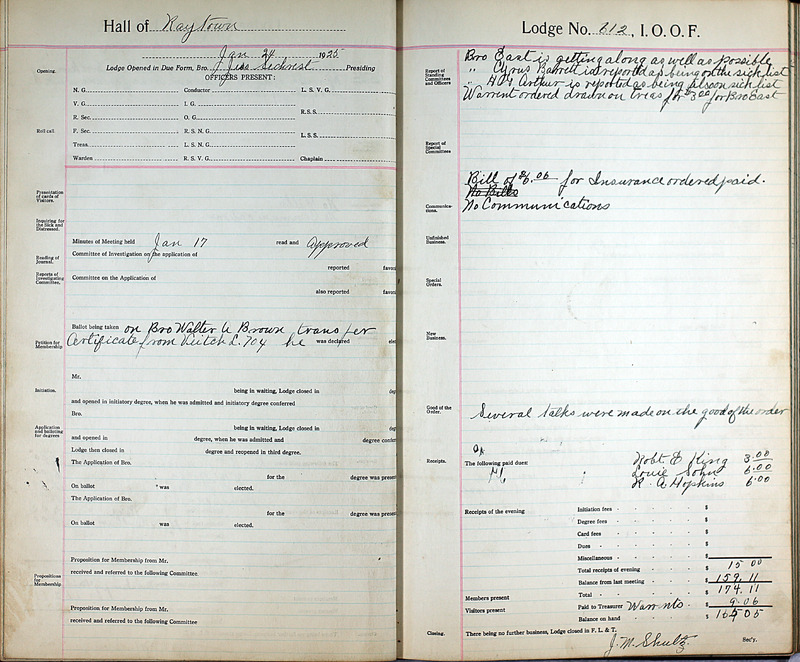 Hall of Raytown
Jan 24 1925
Opening.
Lodge Opened in Due Form, Bro. Jess Sechrest Presiding
OFFICERS PRESENT:
N. G. Conductor L. S. V. G.
V. G. I. G.
R. Sec. O. G. R.S.S.
Roll call. F. Sec. R. S. N. G. L. S. S.
Treas. L. S. N. G.
Warden R. S. V. G. Chaplain
Presentation of cards of Visitors.
Inquiring for the Sick and Distressed.
Minutes of Meeting held Jan 17 read and Approved
Reading of Journal. Committee of Investigation on the application of
reported favor
Reports of Investigating Committee. Committee on the Application of
also reported favor
Ballot being taken on Bro Walter A Brown transfer
Petition for Membership Certificate from L. 704 he was declared elec
Mr.
Initiation. being in waiting, Lodge closed in deg
and opened in initiatory degree, when he was admitted and initiatory degree conferred
Bro.
Application and balloting for degrees being in waiting, Lodge closed in deg
and opened in degree, when he was admitted and degree confer
Lodge then closed in degree and reopened in third degree.
The Application of Bro.
for the degree was presen
On ballot was elected.
The Application of Bro.
for the degree was presen
On ballot was elected.
Proposition for Membership from Mr.
received and referred to the following Committee.
Propositions for Membership.
Proposition for Membership from Mr.
received and referred to the following Committee
Lodge No. 612, I. O. O. F.
Report of Standing Committees and Officers
Bro East is getting along as well as possible
" Cyrus Barrett is reported as being on the sick list
" Arthur is reported as being also on sick list
Warrent ordered drawn on treas for $3.00 for Bro East
Report of Special Committees
Bill of $6.06 for Insurance ordered paid.
No Bills
Communications. No Communications
Unfinished Business.
Special Orders.
New Business.
Good of the Order. Several talks were made on the good of the order
Receipts. The following paid dues: Robt E King 3.00
Louie Sohn 6.00
R. A Hopkins 6.00
Receipts of the evening Initiation fees $
Degree fees $
Card fees $
Dues $
Miscellaneous $
Total receipts of evening $ 15 00
Balance from last meeting $ 159.11
Members present Total $ 174.11
Visitors present Paid to Treasurer Warrnts $ 9.06
Balance on hand $ 165 05
Closing. There being no further business, Lodge closed in F. L. & T.
J. M. Shultz Sec'y.